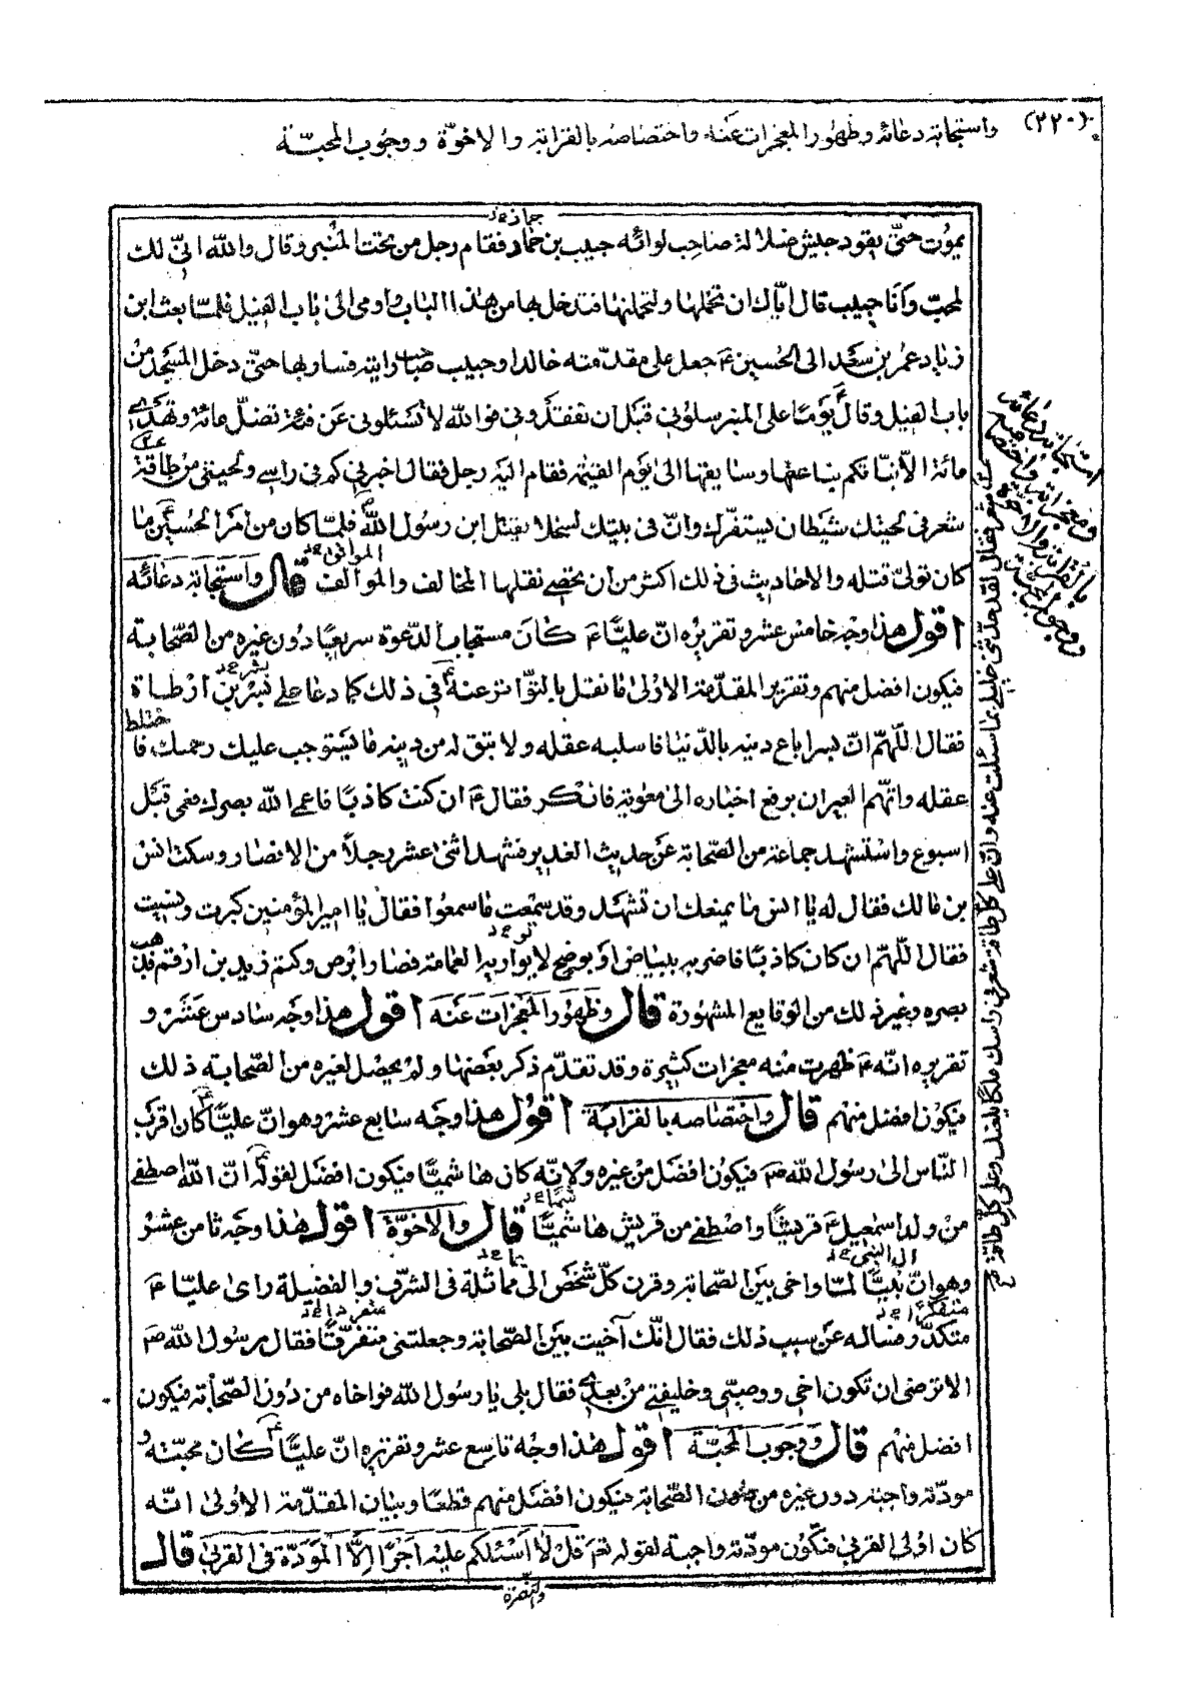 (٢٢٠) واستجابة دعائه وظهور المعجزات عنه واختصاصه بالقرابة والاخوّة ووجوب المحبّة
جماز
يموت حتّى يقود جيش ضلالة صاحب لوائه حبيب بن حماد فقام رجل من تحت المنبر وقال والله انّى لك
لمحبّ وانا حبيب قال ايّاك ان تحملها ولتحملنها فتدخل بها من هذا الباب واومى الى باب الفيل فلمّا بعث ابن
زياد عمر بن سعد الى الحسين ع جعل على مقدّمته خالدا وحبيب صاحب رايته فسار بها حتّى دخل المسجد من
باب الفيل وقال يومًا على المنبر سلونى قبل ان تفقدونى فوالله لا تسئلونى عن فئة تضلّ مائة وتهدى
مائة الّا نبّاتكم بناعقها وسايقها الى يوم القيمة فقام اليه رجل فقال اخبرنى كم فى راسى ولحيتى من طاقة
شعر فى لحيتك شيطان يستفزك وانّ فى بيتك لسخلا يقتل ابن رسول الله فلمّا كان من امر الحسين ما
كان تولىّ قتله والاحاديث فى ذلك اكثر من ان تحصى نقلها المخالف والموالف قال واستجابة دعائه
اقول هذا وجه خامس عشر وتقريره انّ عليًّا ع كان مستجاب الدّعوة سريعًا دون غيره من الصّحابة
فيكون افضل منهم وتقرير المقدّمة الاولى ما نقل بالتّواتر عنه فى ذلك كما دعا على بسر بن ارطاة
فقال اللّهمّ انّ بسرا باع دينه بالدّنيا فاسلبه عقله ولا تبق له من دينه ما يستوجب عليك رحمتك فا
ختلط
عقله واتّهم العيزار برفع اخباره الى معوية فانكر فقال ع ان كنت كاذبًا فاعمى الله بصرك فعمى قبل
اسبوع واستشهد جماعة من الصّحابة عن حديث الغدير فشهد اثنى عشر رجلاً من الانصار وسكت انس
بن مالك فقال له يا انس ما يمنعك ان تشهد وقد سمعت ما سمعوا فقال يا امير المؤمنين كبرت ونسيت
فقال اللّهمّ ان كان كاذبًا فاضربه ببياض او بوضح لا يواريه العمامة فصار ابرص وكتم زيد بن ارقم فذهب
بصره وغير ذلك من الوقايع المشهورة قال وظهور المعجزات عنه اقول هذا وجه سادس عشر و
تقريره انّه ع ظهرت منه معجزات كثيرة وقد تقدّم ذكر بعضها ولم يحصل لغيره من الصّحابة ذلك
فيكون افضل منهم قال واختصاصه بالقرابة اقول هذا وجه سابع عشر وهو انّ عليًّا كان اقرب
النّاس الى رسول الله ص فيكون افضل من غيره ولانّه كان هاشميًّا فيكون افضل لقوله انّ الله اصطفى
من ولد اسمعيل ع قريشًا واصطفى من قريش هاشميًّا قال والاخوّة اقول هذا وجه ثامن عشر
وهو انّ نبيًّا لمّا واخى بين الصّحابة وقرن كلّ شخص الى مماثله فى الشّرف والفضيلة راى عليّا ع
متكدّرا فساله عن سبب ذلك فقال انّك آخيت بين الصّحابة وجعلتنى متفرّقًا فقال رسول الله ص
الا ترضى ان تكون اخى ووصيّى وخليفتى من بعدى فقال بلى يا رسول الله فواخاه من دون الصّحابة فيكون
افضل منهم قال ووجوب المحبّة اقول هذا وجه تاسع عشر وتقريره انّ عليًّا كان محبّته و
مودّته واجبة دون غيره من الصّحابة فيكون افضل منهم قطعًا وبيان المقدّمة الاولى انّه
كان اولى القربى فتكون مودّته واجبة لقوله تعم قل لا اسئلكم عليه اجرًا الّا المودّة فى القربى قال
والنّصرة
استجابة دعائه
ومعجزاته واختصاصه
بالقرابة والاخوّة
ووجوب المحبّة
شعر فقال لقد حدّثنى خليلى بما سئلت عنه وانّ على كلّ طاقة شعر فى راسك ملكا يلعنك وعلى كلّ طاقة